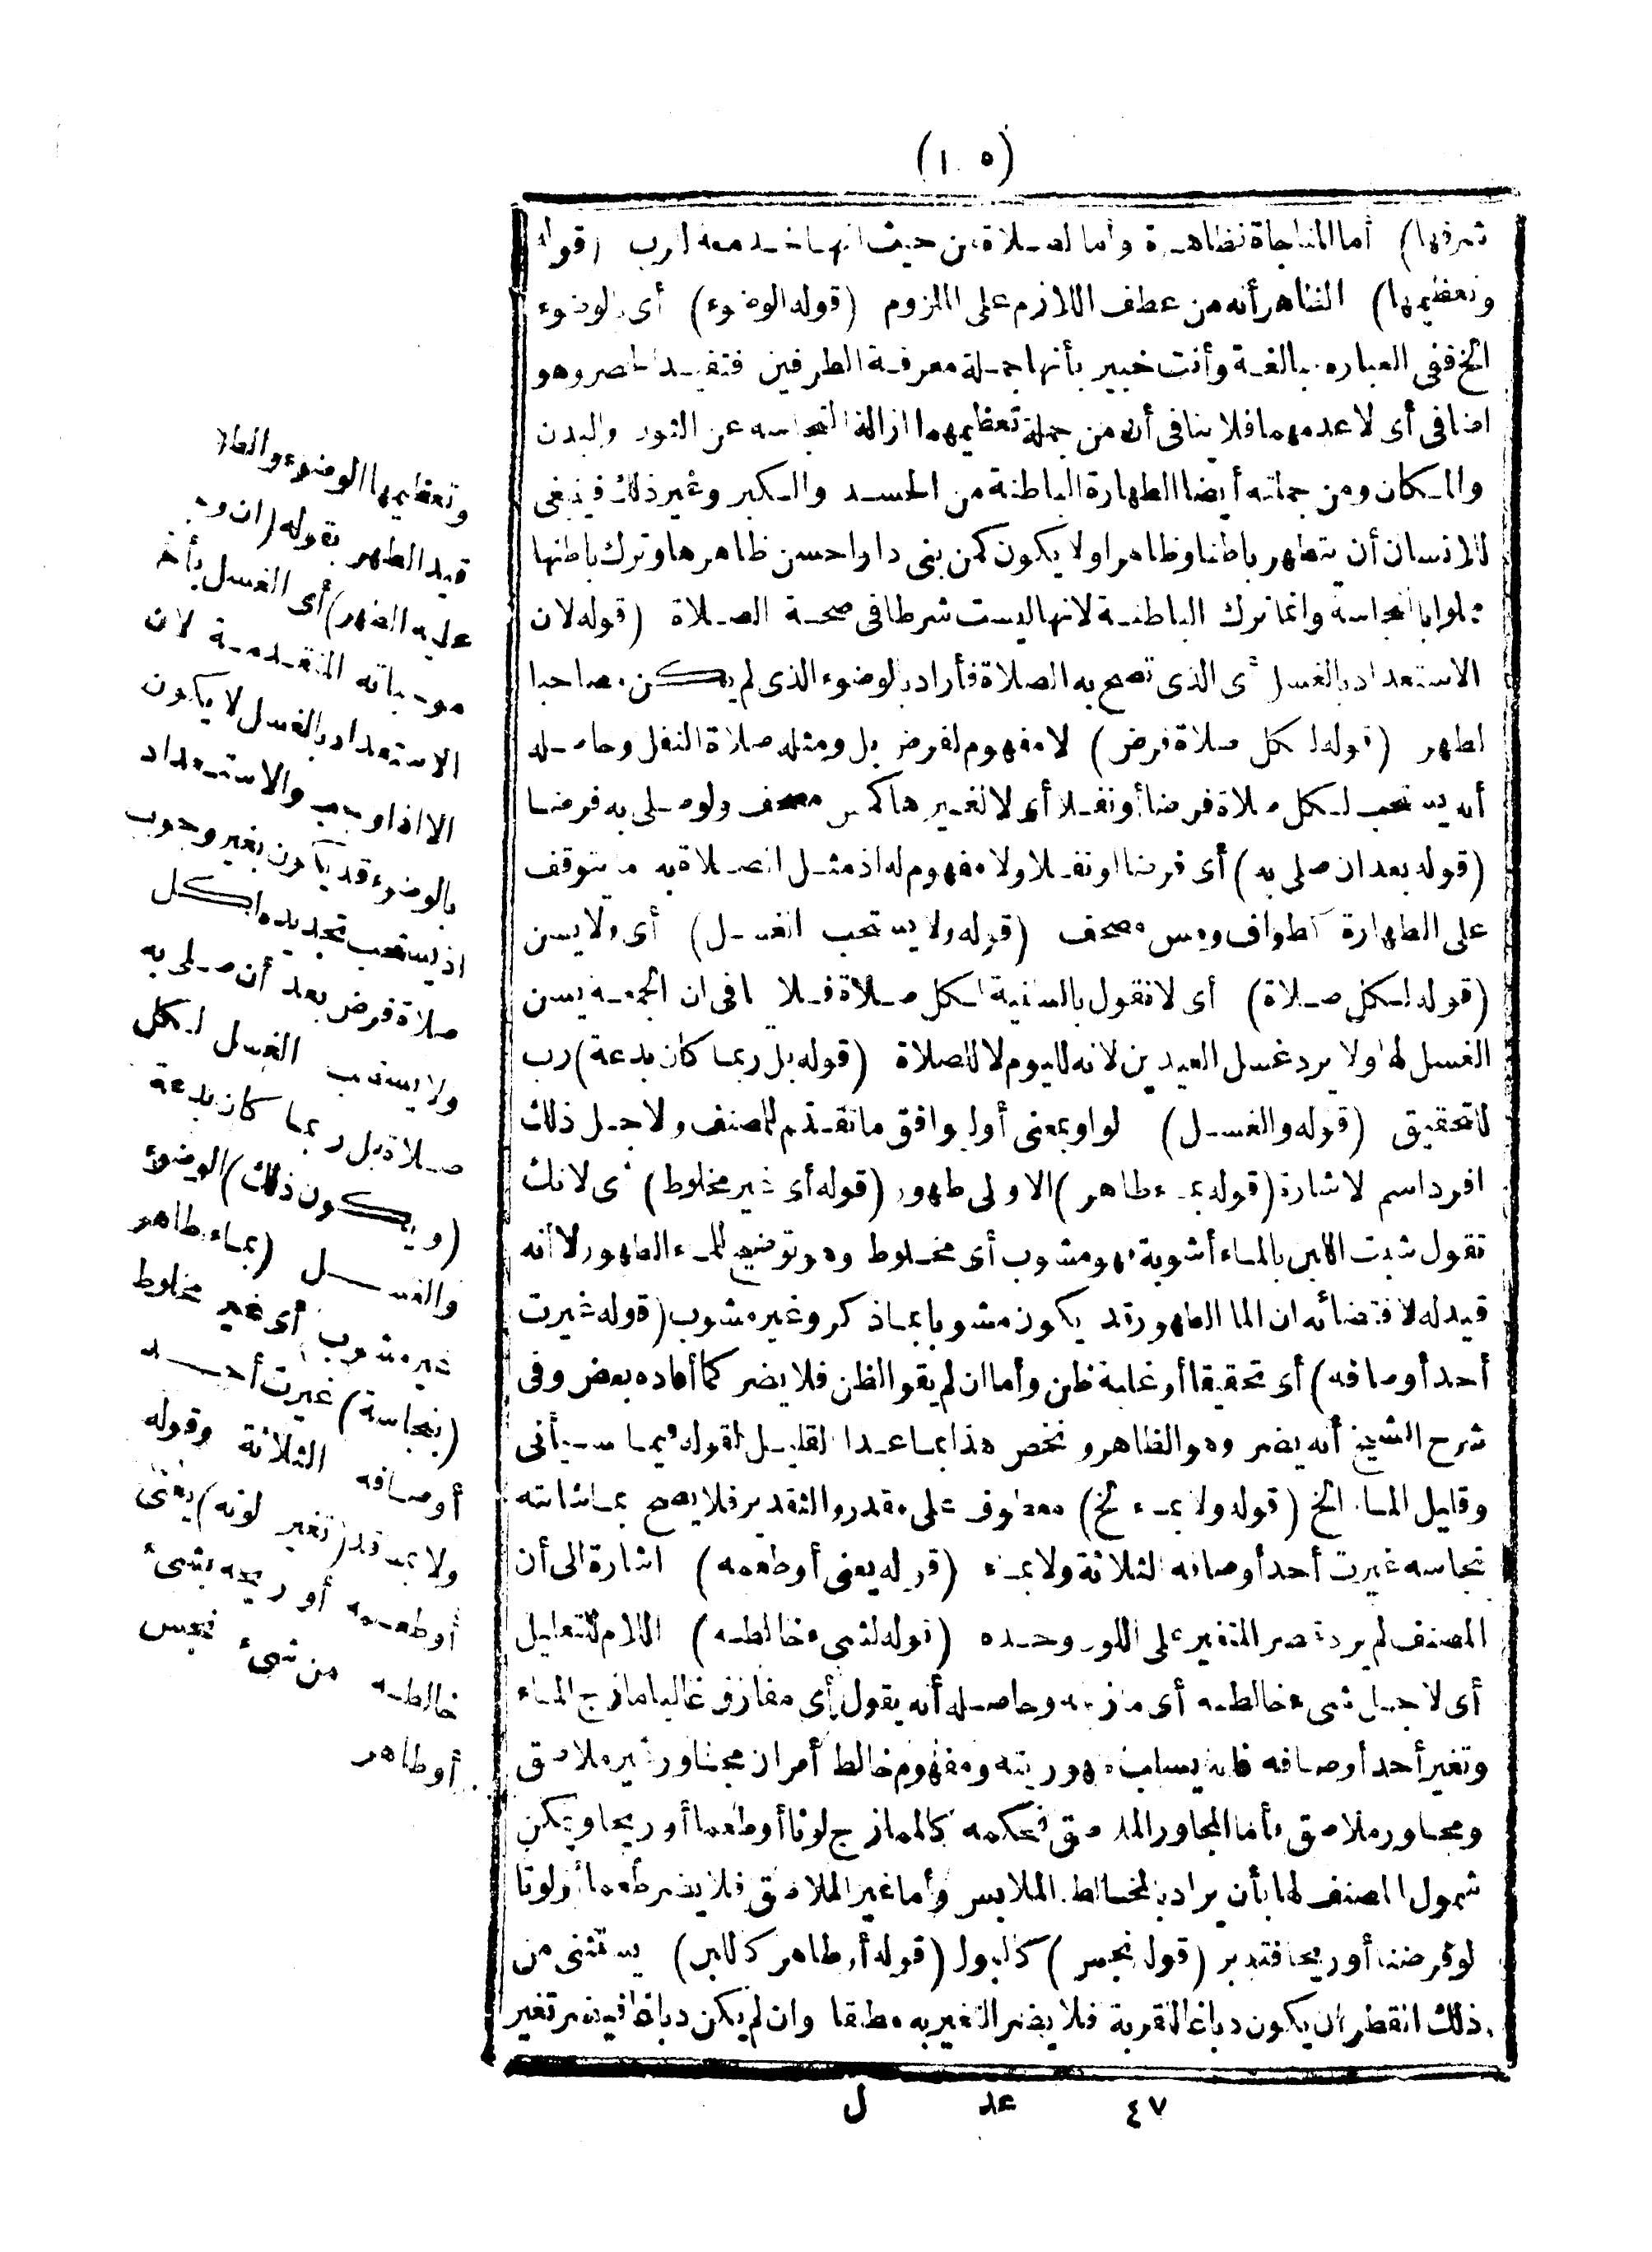 (١٠٥)
شرفها) أما المناجاة فظاهرة وأما الصلاة فمن حيث انها خدمة الرب (قوله
وتعظيمها) الظاهر أنه من عطف اللازم على الملزوم (قوله الوضوء) أى الوضوء
الخ ففى العبارة مبالغة وأنت خبير بأنها جملة معرفة الطرفين فتفيد الحصر وهو
اضافى أى لا عدمهما فلا ينافى أن من جملة تعظيمهما ازالة النجاسة عن الثوب والبدن
والمكان ومن جملته أيضا الطهارة الباطنة من الحسد والكبر وغير ذلك فينبغى
للانسان أن يتطهر باطنا وظاهرا ولا يكون كمن بنى دارا حسن ظاهرها وترك باطنها
مملوأ بالنجاسة وانما ترك الباطنية لانها ليست شرطا فى صحة الصلاة (قوله لان
الاستعداد بالغسل) أى الذى تصح به الصلاة فأراد بالوضوء الذى لم يكن مصاحبا
لطهر (قوله لكل صلاة فرض) لا مفهوم لفرض بل ومثله صلاة النفل وحاصله
أنه يستحب لكل صلاة فرضا أو نفلا أى لا لغيرها كمس مصحف ولو صلى به فرضا
(قوله بعد ان صلى به) أى فرضا أو نفلا ولا مفهوم له اذ مثل الصلاة به ما يتوقف
على الطهارة كطواف ومس مصحف (قوله ولا يستحب الغسل) أى ولا يسن
(قوله لكل صلاة) أى لا نقول بالسنية لكل صلاة فلا ينافى ان الجمعة يسن
الغسل لها ولا يرد غسل العيدين لانه لليوم لا للصلاة (قوله بل ربما كان بدعة) رب
للتحقيق (قوله والغسل) الواو بمعنى أو ليوافق ما تقدم للمصنف ولاجل ذلك
افرد اسم الاشارة (قوله بماء طاهر) الاولى طهور (قوله أى غير مخلوط) أى لانك
تقول شبت اللبن بالماء أشوبه فهو مشوب أى مخلوط وهو توضيح للماء الطهور لا أنه
قيد له لاقتضائه ان الماء الطهور قد يكون مشوبا بما ذكر وغير مشوب (قوله غيرت
أحد أوصافه) أى تحقيقا أو غلبة ظن وأما ان لم يقو الظن فلا يضر كما أفاده بعض وفى
شرح الشيخ أنه يضر وهو الظاهر ونخص هذا بما عدا القليل لقوله فيما سيأتى
وقليل الماء الخ (قوله ولا بماء الخ) معطوف على مقدر والتقدير فلا يصح بما شابته
نجاسة غيرت أحد أوصافه الثلاثة ولا بماء (قوله يعنى أو طعمه) اشارة الى أن
المصنف لم يرد قصر التغير على اللون وحده (قوله لشىء خالطه) اللام للتعليل
أى لاجل شىء خالطه أى مازجه وحاصله أنه يقول أى مفارق غالبا مازج الماء
وتغير أحد أوصافه فانه يسلب طهوريته ومفهوم خالط أمران مجاور غير ملاصق
ومجاور ملاصق فأما المجاور الملاصق فحكمه كالممازج لونا أو طعما أو ريحا ويمكن
شمول المصنف لها بأن يراد بالمخالط الملابس وأما غير الملاصق فلا يضر طعما أو لونا
لو فرضنا أو ريحا فتدبر (قوله نجس) كالبول (قوله أو طاهر كاللبن) يستثنى من
ذلك القطران يكون دباغا للقربة فلا يضر التغير به مطلقا وان لم يكن دباغا فيضر تغير
٤٧ عد ل
وتعظيمها الوضوء والطهر
قيد الطهر بقوله (ان وجب
عليه الطهر) أى الغسل بأحد
موجباته المتقدمة لان
الاستعداد بالغسل لا يكون
الا اذا وجب والاستعداد
بالوضوء قد يكون بغير وجوب
اذ يستحب تجديده لكل
صلاة فرض بعد أن صلى به
ولا يستحب الغسل لكل
صلاة بل ربما كان بدعة
(ويكون ذلك) الوضوء
والغسل (بماء طاهر
غير مشوب) أى غير مخلوط
(بنجاسة) غيرت أحد
أوصافه الثلاثة وقوله
ولا بماء قد (تغير لونه) يعنى
أو طعمه أو ريحه بشىء
خالطه من شىء نجس
أو طاهر